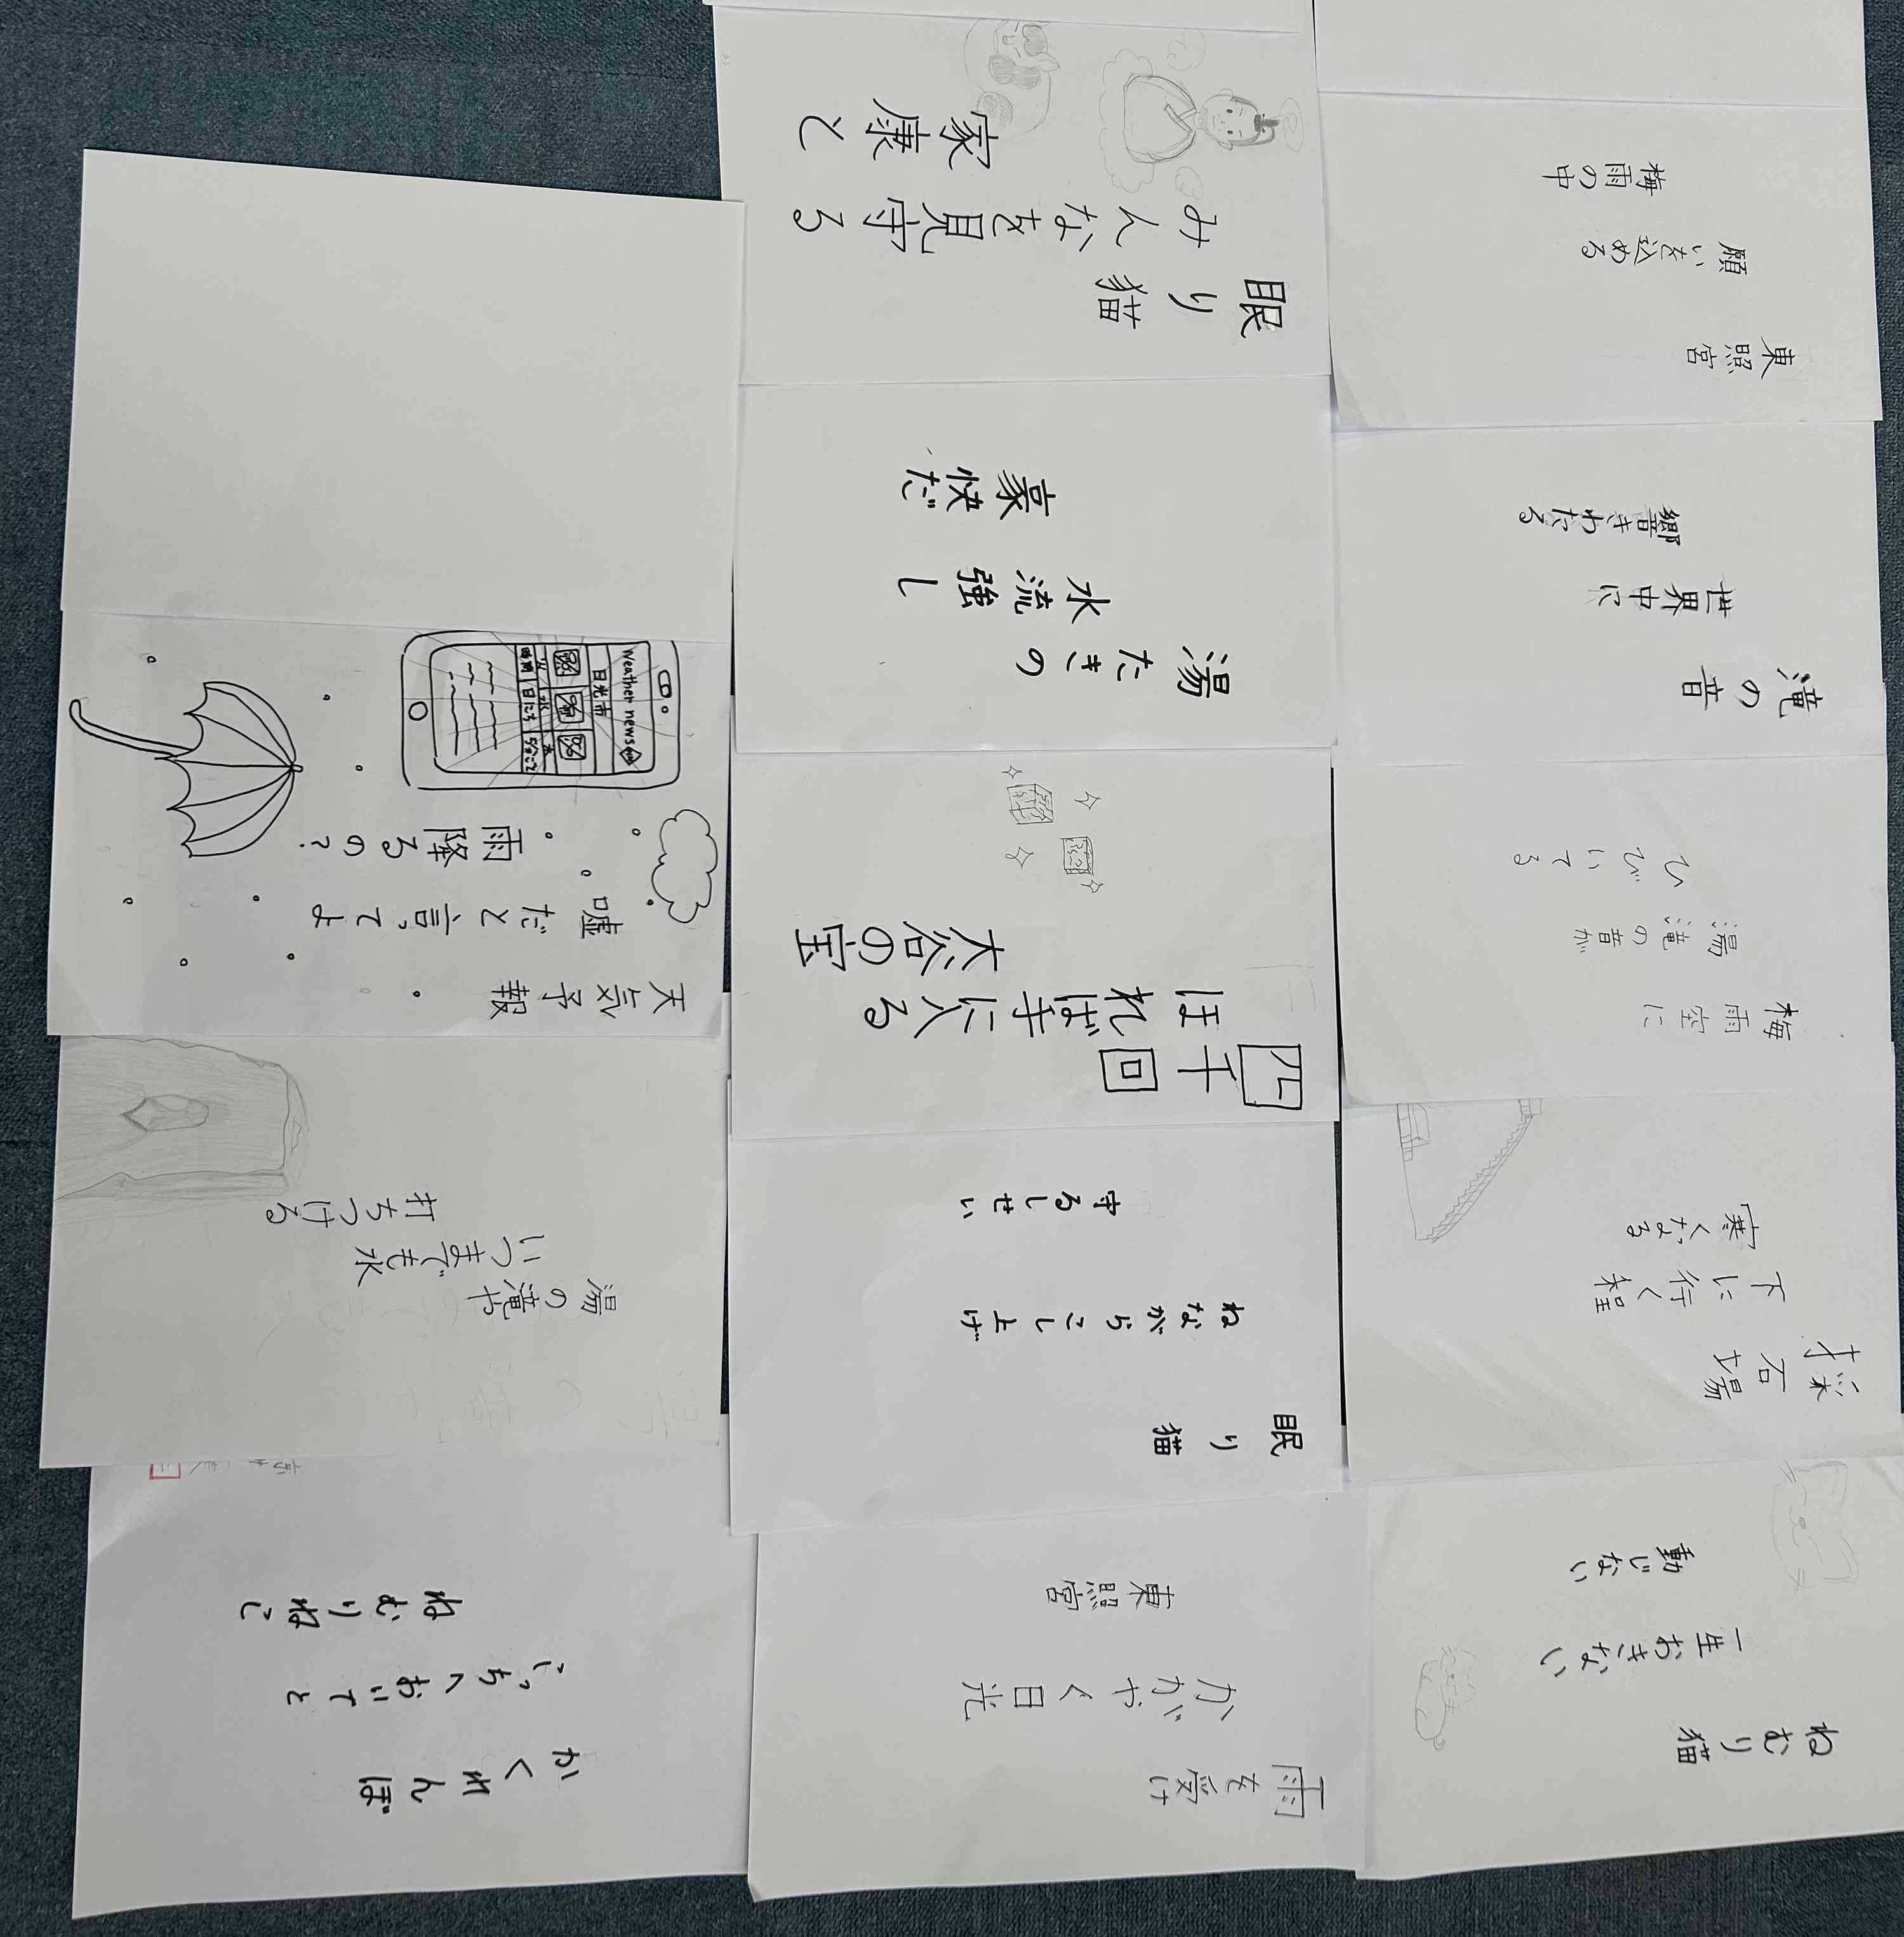 東照宮
願いを込める
梅雨の中
滝の音
世界中に
響きわたる
梅雨空に
湯滝の音が
ひびいてる
採石場
下に行く程
寒くなる
ねむり猫
一生おきない
動じない
眠り猫
みんなを見守る
家康と
湯たきの
水流強し
豪快だ
千回
ほれば手に入る
大谷の宝
眠り猫
ねながらこし上げ
守るしせい
雨を受け
かがやく日光
東照宮
天気予報
嘘だと言ってよ
雨降るの?
Weather news
日光市
湯の滝や
いつまでも水
打ちつける
かくれんぼ
こっちへおいでと
ねむりねこ